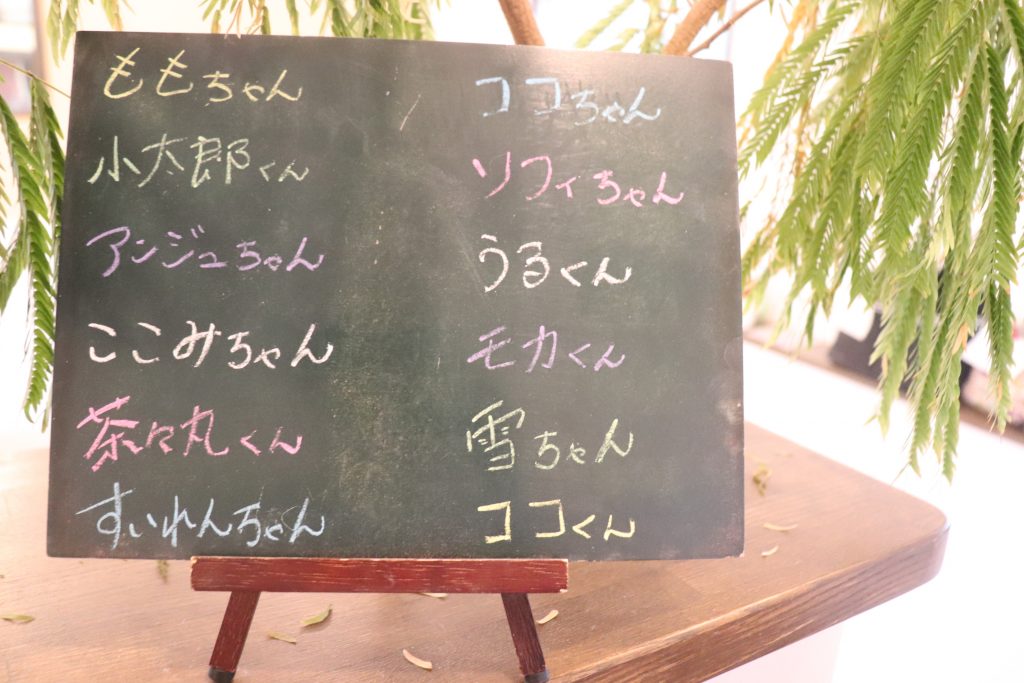 ももちゃん
小太郎くん
アンジュちゃん
ここみちゃん
茶々丸くん
すいれんちゃん
ココちゃん
ソフィちゃん
うるくん
モカくん
雪ちゃん
ココくん